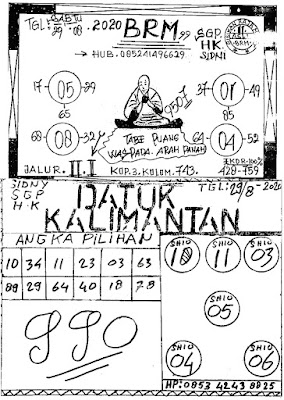 TGL: SABTU 29 '08 2020 BRM 99
SGP HK SIDNI
HUB. 085241496629
17 05 29
65
37 01 49
85
2501
68 08 32
64 04 52
TABE PUANG
WASPADA. ARAH PANAH
JALUR. II.I KOP.3. KOLOM. 743.
EKOR-100%
428-459
SIDNY
SGP
HK
TGL: 29/8-2020
DATUK
KALIMANTAN
ANGKA PILIHAN
10 34 11 23 03 63
89 29 64 40 18 78
990
SHIO SHIO SHIO
10 11 03
SHIO
05
SHIO SHIO
04 06
HP: 0853 4243 8825